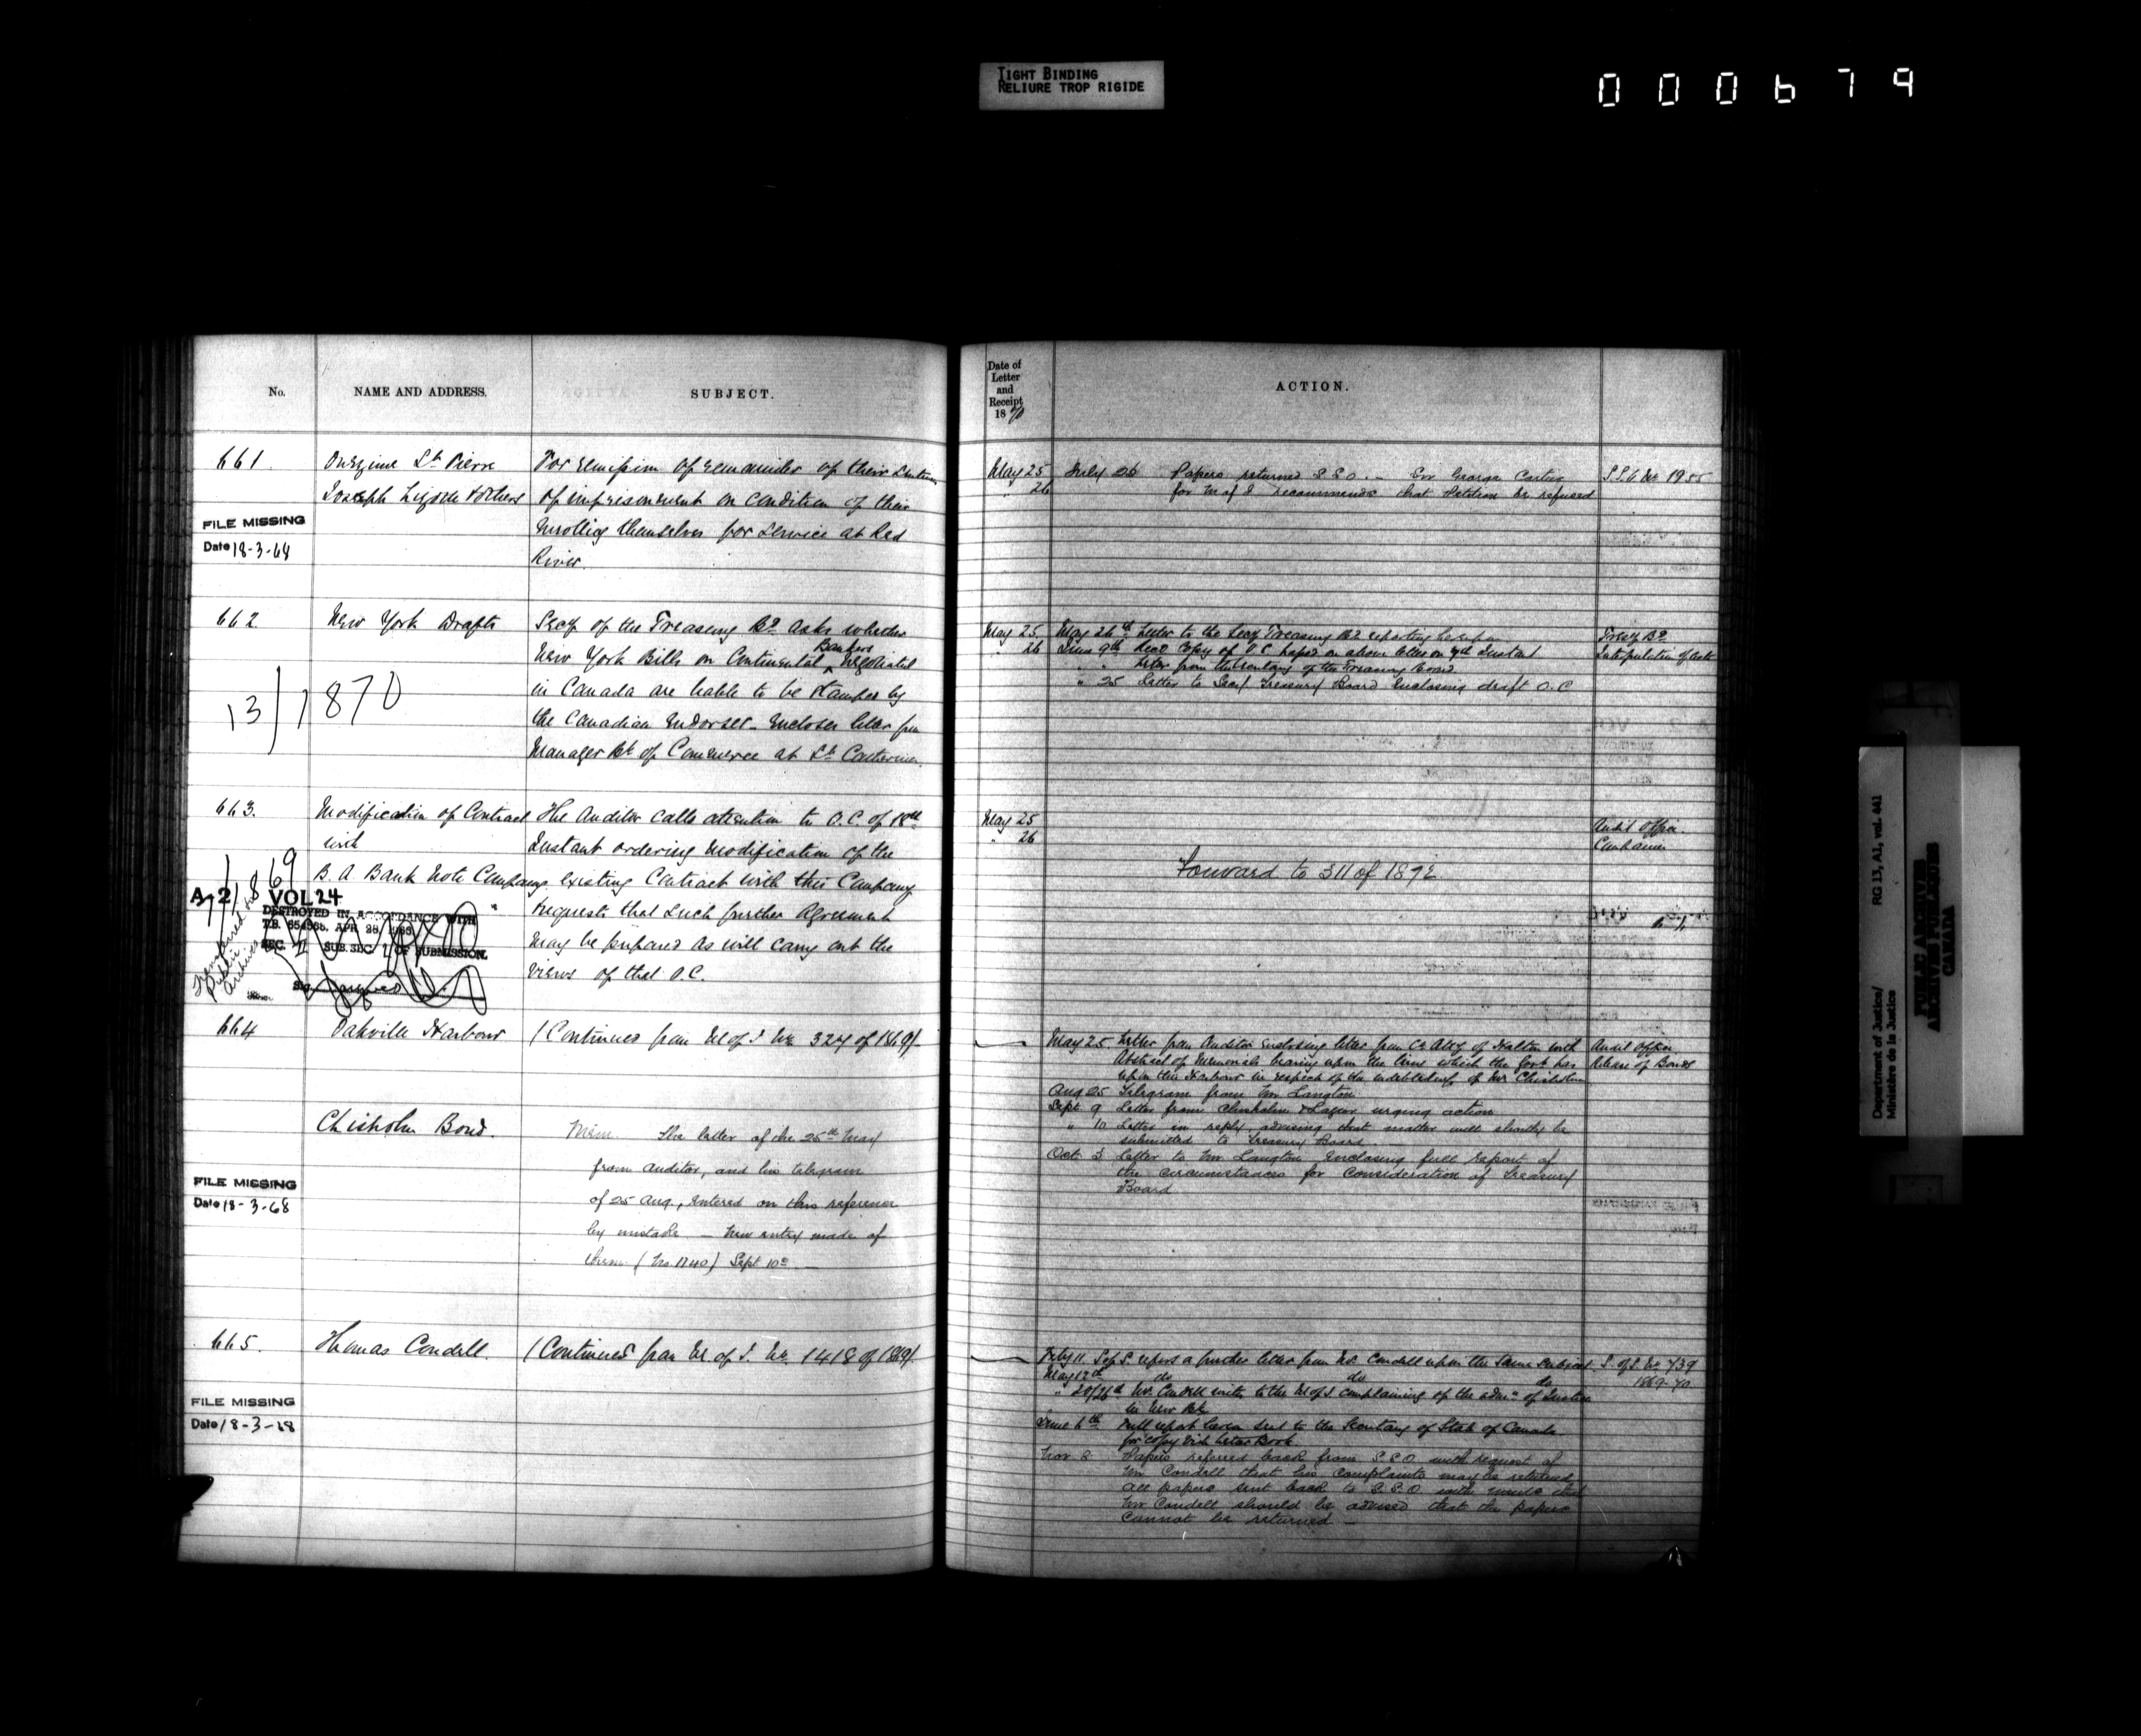 TIGHT BINDING
RELIURE TROP RIGIDE
000679
No.
NAME AND ADDRESS.
SUBJECT.
661.
Onezime St. Pierre
Joseph & others
FILE MISSING
Date 18-3-68
For remission of remainder of their sentence
of imprisonment on condition of their
enrolling themselves for service at Red
River.
662.
New York Drafts
13/1870
Secy of the Treasury Bd. asks whether
New York Bills on Continental Bankers negotiated
in Canada are liable to be stamped by
the Canadian Endorser - Encloses letter from
Manager Bk of Commerce at St. Catherines.
663.
Modification of Contract
with
B. A. Bank Note Company
A-2/ VOL 24
DESTROYED IN ACCORDANCE WITH
T.B. APR 28
SEC. II SUB.SEC. 1 OF SUBMISSION.
Transferred to
Public
Archives
The Auditor calls attention to O.C. of 18th
Instant ordering modification of the
existing Contract with this Company
requests that such further Agreement
may be prepared as will carry out the
views of that O.C.
664
Oakville Harbour
(Continued from M of J No. 324 of 1869).
Chisholm Bond.
FILE MISSING
Date 18-3-68
Mem. The letter of the 25th May
from Auditor, and his telegram
of 25 Aug., entered on this reference
by mistake - New entry made of
them (No. 1240) Sept 10th -
665.
Thomas Condell.
(Continued from M. of J. No. 1418 of 1869).
FILE MISSING
Date 18-3-68
Date of
Letter
and
Receipt
1870
ACTION.
May 25
" 26
July 26 Papers returned S.S.O. - Sir George Cartier
for M of J recommends that Petition be refused
S.S.O No. 1955
May 25.
" 26
May 26th. Letter to the Secy Treasury Bd. reporting hereupon
June 9th Recd Copy of O.C. based on above letter on 7th Instant
" " Letter from the Secretary of the Treasury Board
" 25 Letter to Secy Treasury Board enclosing draft O.C
Treasy Bd.
Interpretation of Acts
May 25
" 26
Forward to 311 of 1872.
Audit Office.
May 25 Letter from Auditor enclosing letter from Co. Atty of Halton with
Abstract of Memorials bearing upon the lien which the Govt has
upon this Harbour in respect of the indebtedness of Mr. Chisholm
Aug 25 Telegram from Mr Langton
Sept 9 Letter from Chisholm & urging action
" 10 Letter in reply, advising that matter will shortly be
submitted to Treasury Board.
Oct. 3 Letter to Mr Langton, enclosing full report of
the circumstances for consideration of Treasury
Board
Audit Office
Release of Bonds
Feby 11. Sec S. reports a further letter from Mr. Condell upon the same subject
May 12th do do do
" 20/26th Mr. Condell writes to the M of J complaining of the admn. of Justice
in New Bk
June 6th Full report hereon sent to the Secretary of State of Canada
for copy vide Letter Book
Nov 8 Papers referred back from S.S.O with request of
Mr Condell that his complaints may be returned
all papers sent back to S.S.O with that
Mr Condell should be advised that the papers
cannot be returned -
S. of S. No. 739
1869-70
Department of Justice/
Ministère de la Justice
RG 13, A1, vol. 441
PUBLIC ARCHIVES
ARCHIVES PUBLIQUES
CANADA